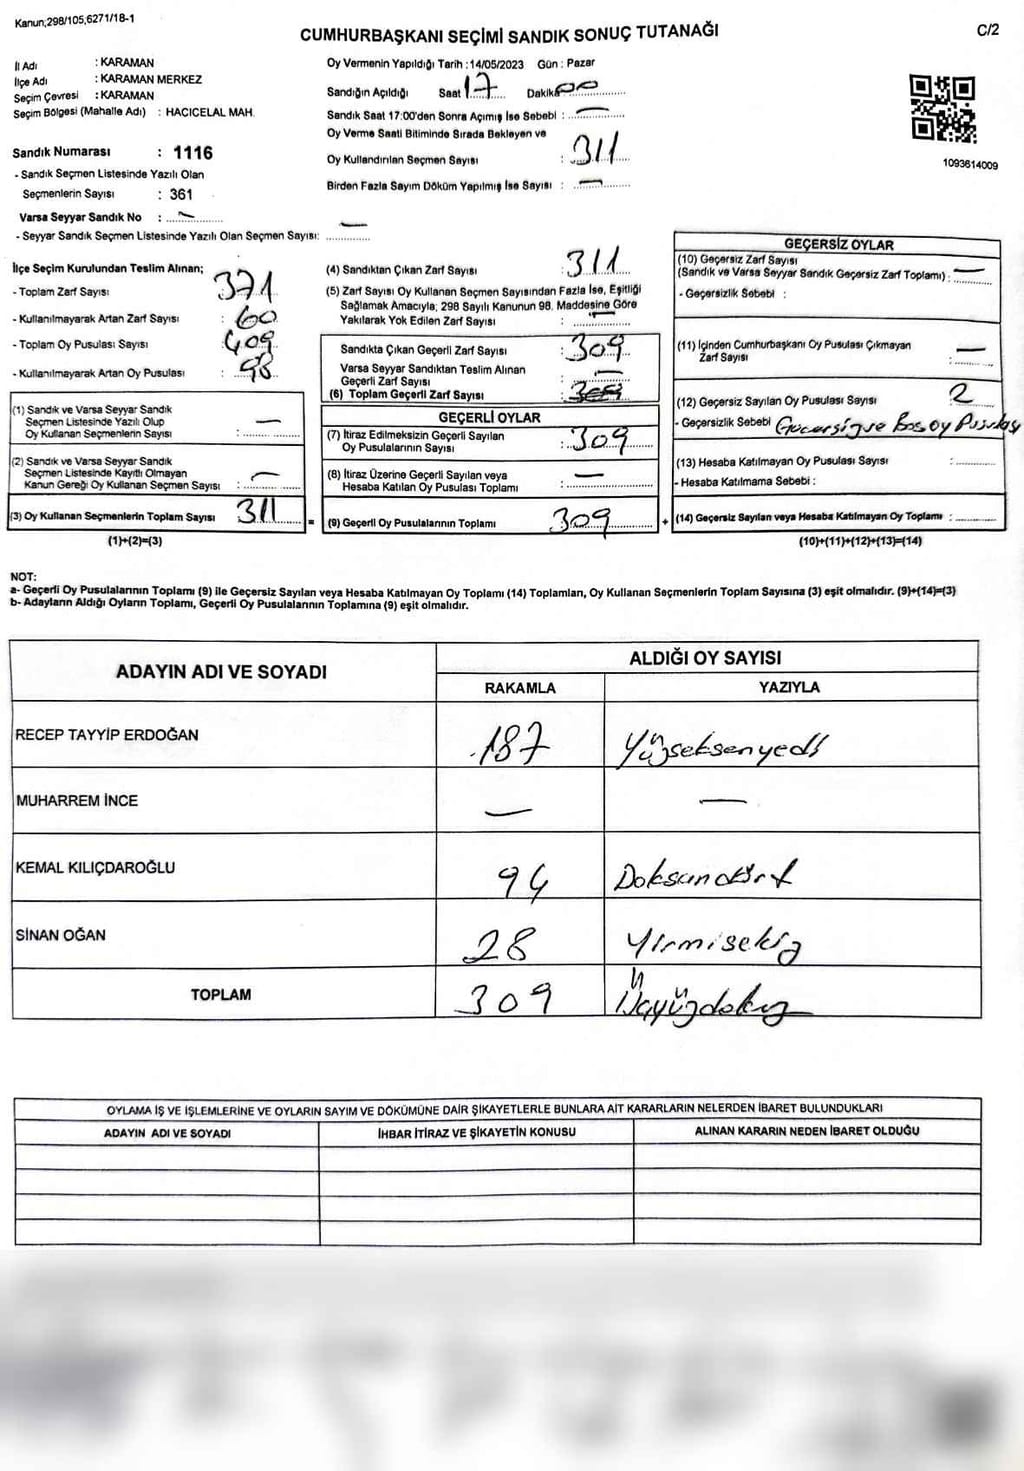 Kanun,298/105,6271/18-1
CUMHURBAŞKANI SEÇİMİ SANDIK SONUÇ TUTANAĞI
C/2
İl Adı : KARAMAN
İlçe Adı : KARAMAN MERKEZ
Seçim Çevresi : KARAMAN
Seçim Bölgesi (Mahalle Adı) : HACICELAL MAH.
Sandık Numarası : 1116
- Sandık Seçmen Listesinde Yazılı Olan
Seçmenlerin Sayısı : 361
Varsa Seyyar Sandık No : —
- Seyyar Sandık Seçmen Listesinde Yazılı Olan Seçmen Sayısı: —
Oy Vermenin Yapıldığı Tarih :14/05/2023 Gün : Pazar
Sandığın Açıldığı Saat 17 Dakika 00
Sandık Saat 17:00'den Sonra Açımış İse Sebebi : —
Oy Verme Saati Bitiminde Sırada Bekleyen ve
Oy Kullandırılan Seçmen Sayısı : 311
Birden Fazla Sayım Döküm Yapılmış İse Sayısı : —
1093614009
İlçe Seçim Kurulundan Teslim Alınan;
- Toplam Zarf Sayısı : 371
- Kullanılmayarak Artan Zarf Sayısı : 60
- Toplam Oy Pusulası Sayısı : 409
- Kullanılmayarak Artan Oy Pusulası : 98
(1) Sandık ve Varsa Seyyar Sandık
Seçmen Listesinde Yazılı Olup
Oy Kullanan Seçmenlerin Sayısı : —
(2) Sandık ve Varsa Seyyar Sandık
Seçmen Listesinde Kayıtlı Olmayan
Kanun Gereği Oy Kullanan Seçmen Sayısı : —
(3) Oy Kullanan Seçmenlerin Toplam Sayısı 311
(1)+(2)=(3)
(4) Sandıktan Çıkan Zarf Sayısı : 311
(5) Zarf Sayısı Oy Kullanan Seçmen Sayısından Fazla İse, Eşitliği
Sağlamak Amacıyla; 298 Sayılı Kanunun 98. Maddesine Göre
Yakılarak Yok Edilen Zarf Sayısı : —
Sandıkta Çıkan Geçerli Zarf Sayısı : 309
Varsa Seyyar Sandıktan Teslim Alınan
Geçerli Zarf Sayısı : —
(6) Toplam Geçerli Zarf Sayısı :
GEÇERLİ OYLAR
(7) İtiraz Edilmeksizin Geçerli Sayılan
Oy Pusulalarının Sayısı : 309
(8) İtiraz Üzerine Geçerli Sayılan veya
Hesaba Katılan Oy Pusulası Toplamı : —
= (9) Geçerli Oy Pusulalarının Toplamı 309 +
GEÇERSİZ OYLAR
(10) Geçersiz Zarf Sayısı
(Sandık ve Varsa Seyyar Sandık Geçersiz Zarf Toplamı) : —
- Geçersizlik Sebebi :
(11) İçinden Cumhurbaşkanı Oy Pusulası Çıkmayan
Zarf Sayısı : —
(12) Geçersiz Sayılan Oy Pusulası Sayısı : 2
- Geçersizlik Sebebi ve Boş Oy Pusulası
(13) Hesaba Katılmayan Oy Pusulası Sayısı :
- Hesaba Katılmama Sebebi :
(14) Geçersiz Sayılan veya Hesaba Katılmayan Oy Toplamı :
(10)+(11)+(12)+(13)=(14)
NOT:
a- Geçerli Oy Pusulalarının Toplamı (9) ile Geçersiz Sayılan veya Hesaba Katılmayan Oy Toplamı (14) Toplamları, Oy Kullanan Seçmenlerin Toplam Sayısına (3) eşit olmalıdır. (9)+(14)=(3)
b- Adayların Aldığı Oyların Toplamı, Geçerli Oy Pusulalarının Toplamına (9) eşit olmalıdır.
ADAYIN ADI VE SOYADI
ALDIĞI OY SAYISI
RAKAMLA YAZIYLA
RECEP TAYYİP ERDOĞAN 187 Yüzseksenyedi
MUHARREM İNCE — —
KEMAL KILIÇDAROĞLU 94 Doksandört
SİNAN OĞAN 28 Yirmisekiz
TOPLAM 309 Üçyüzdokuz
OYLAMA İŞ VE İŞLEMLERİNE VE OYLARIN SAYIM VE DÖKÜMÜNE DAİR ŞİKAYETLERLE BUNLARA AİT KARARLARIN NELERDEN İBARET BULUNDUKLARI
ADAYIN ADI VE SOYADI İHBAR İTİRAZ VE ŞİKAYETİN KONUSU ALINAN KARARIN NEDEN İBARET OLDUĞU